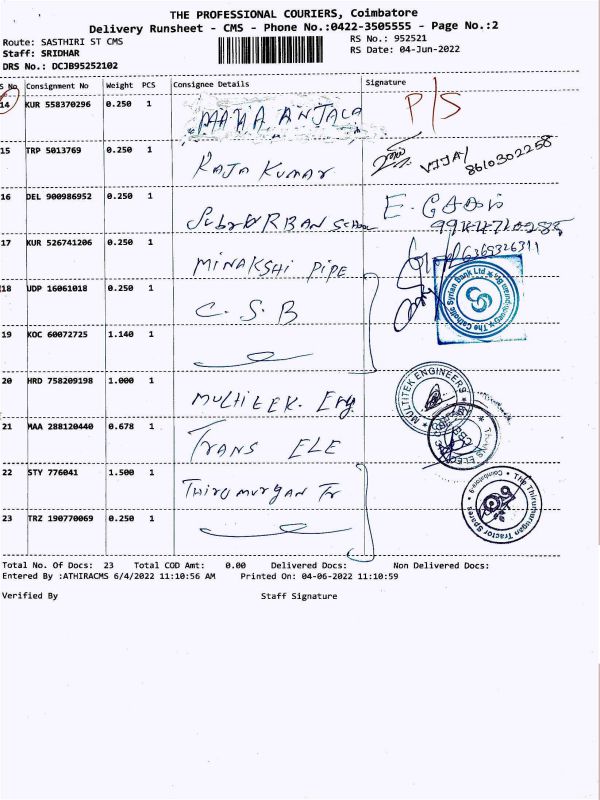 THE PROFESSIONAL COURIERS, Coimbatore
Delivery Runsheet - CMS - Phone No.:0422-3505555 - Page No.:2
Route: SASTHIRI ST CMS
RS No.: 952521
Staff: SRIDHAR
RS Date: 04-Jun-2022
DRS No.: DCJB95252102
S No Consignment No Weight PCS Consignee Details Signature
14 KUR 558370296 0.250 1 MAHA ANJALA P/S
15 TRP 5013769 0.250 1 RAJA KUMAR VIJAY
8610302258
16 DEL 900986952 0.250 1 E.
17 KUR 526741206 0.250 1 MINAKSHI PIPE 6369326311
18 UDP 16061018 0.250 1 C.S.B The Catholic Syrian Bank Ltd
19 KOC 60072725 1.140 1
20 HRD 758209198 1.000 1 MULTITEK. Eng. MULTITEK ENGINEERS
21 MAA 288120440 0.678 1 TRANS ELE
22 STY 776041 1.500 1 Thirumurgan Tr The Thirumurugan Tractor Spares Coimbatore
23 TRZ 190770069 0.250 1
Total No. Of Docs: 23 Total COD Amt: 0.00 Delivered Docs: Non Delivered Docs:
Entered By :ATHIRACMS 6/4/2022 11:10:56 AM Printed On: 04-06-2022 11:10:59
Verified By Staff Signature